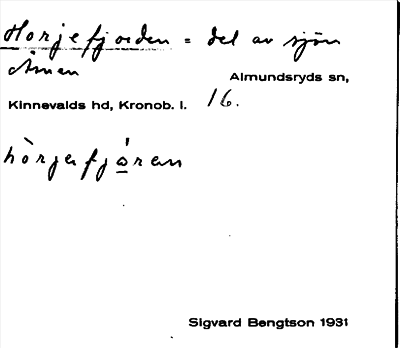 Horjefjorden = del av sjön
Åmen
Almundsryds sn,
Kinnevalds hd, Kronob. l. 16.
hòrjefjó̲ren
Sigvard Bengtson 1931